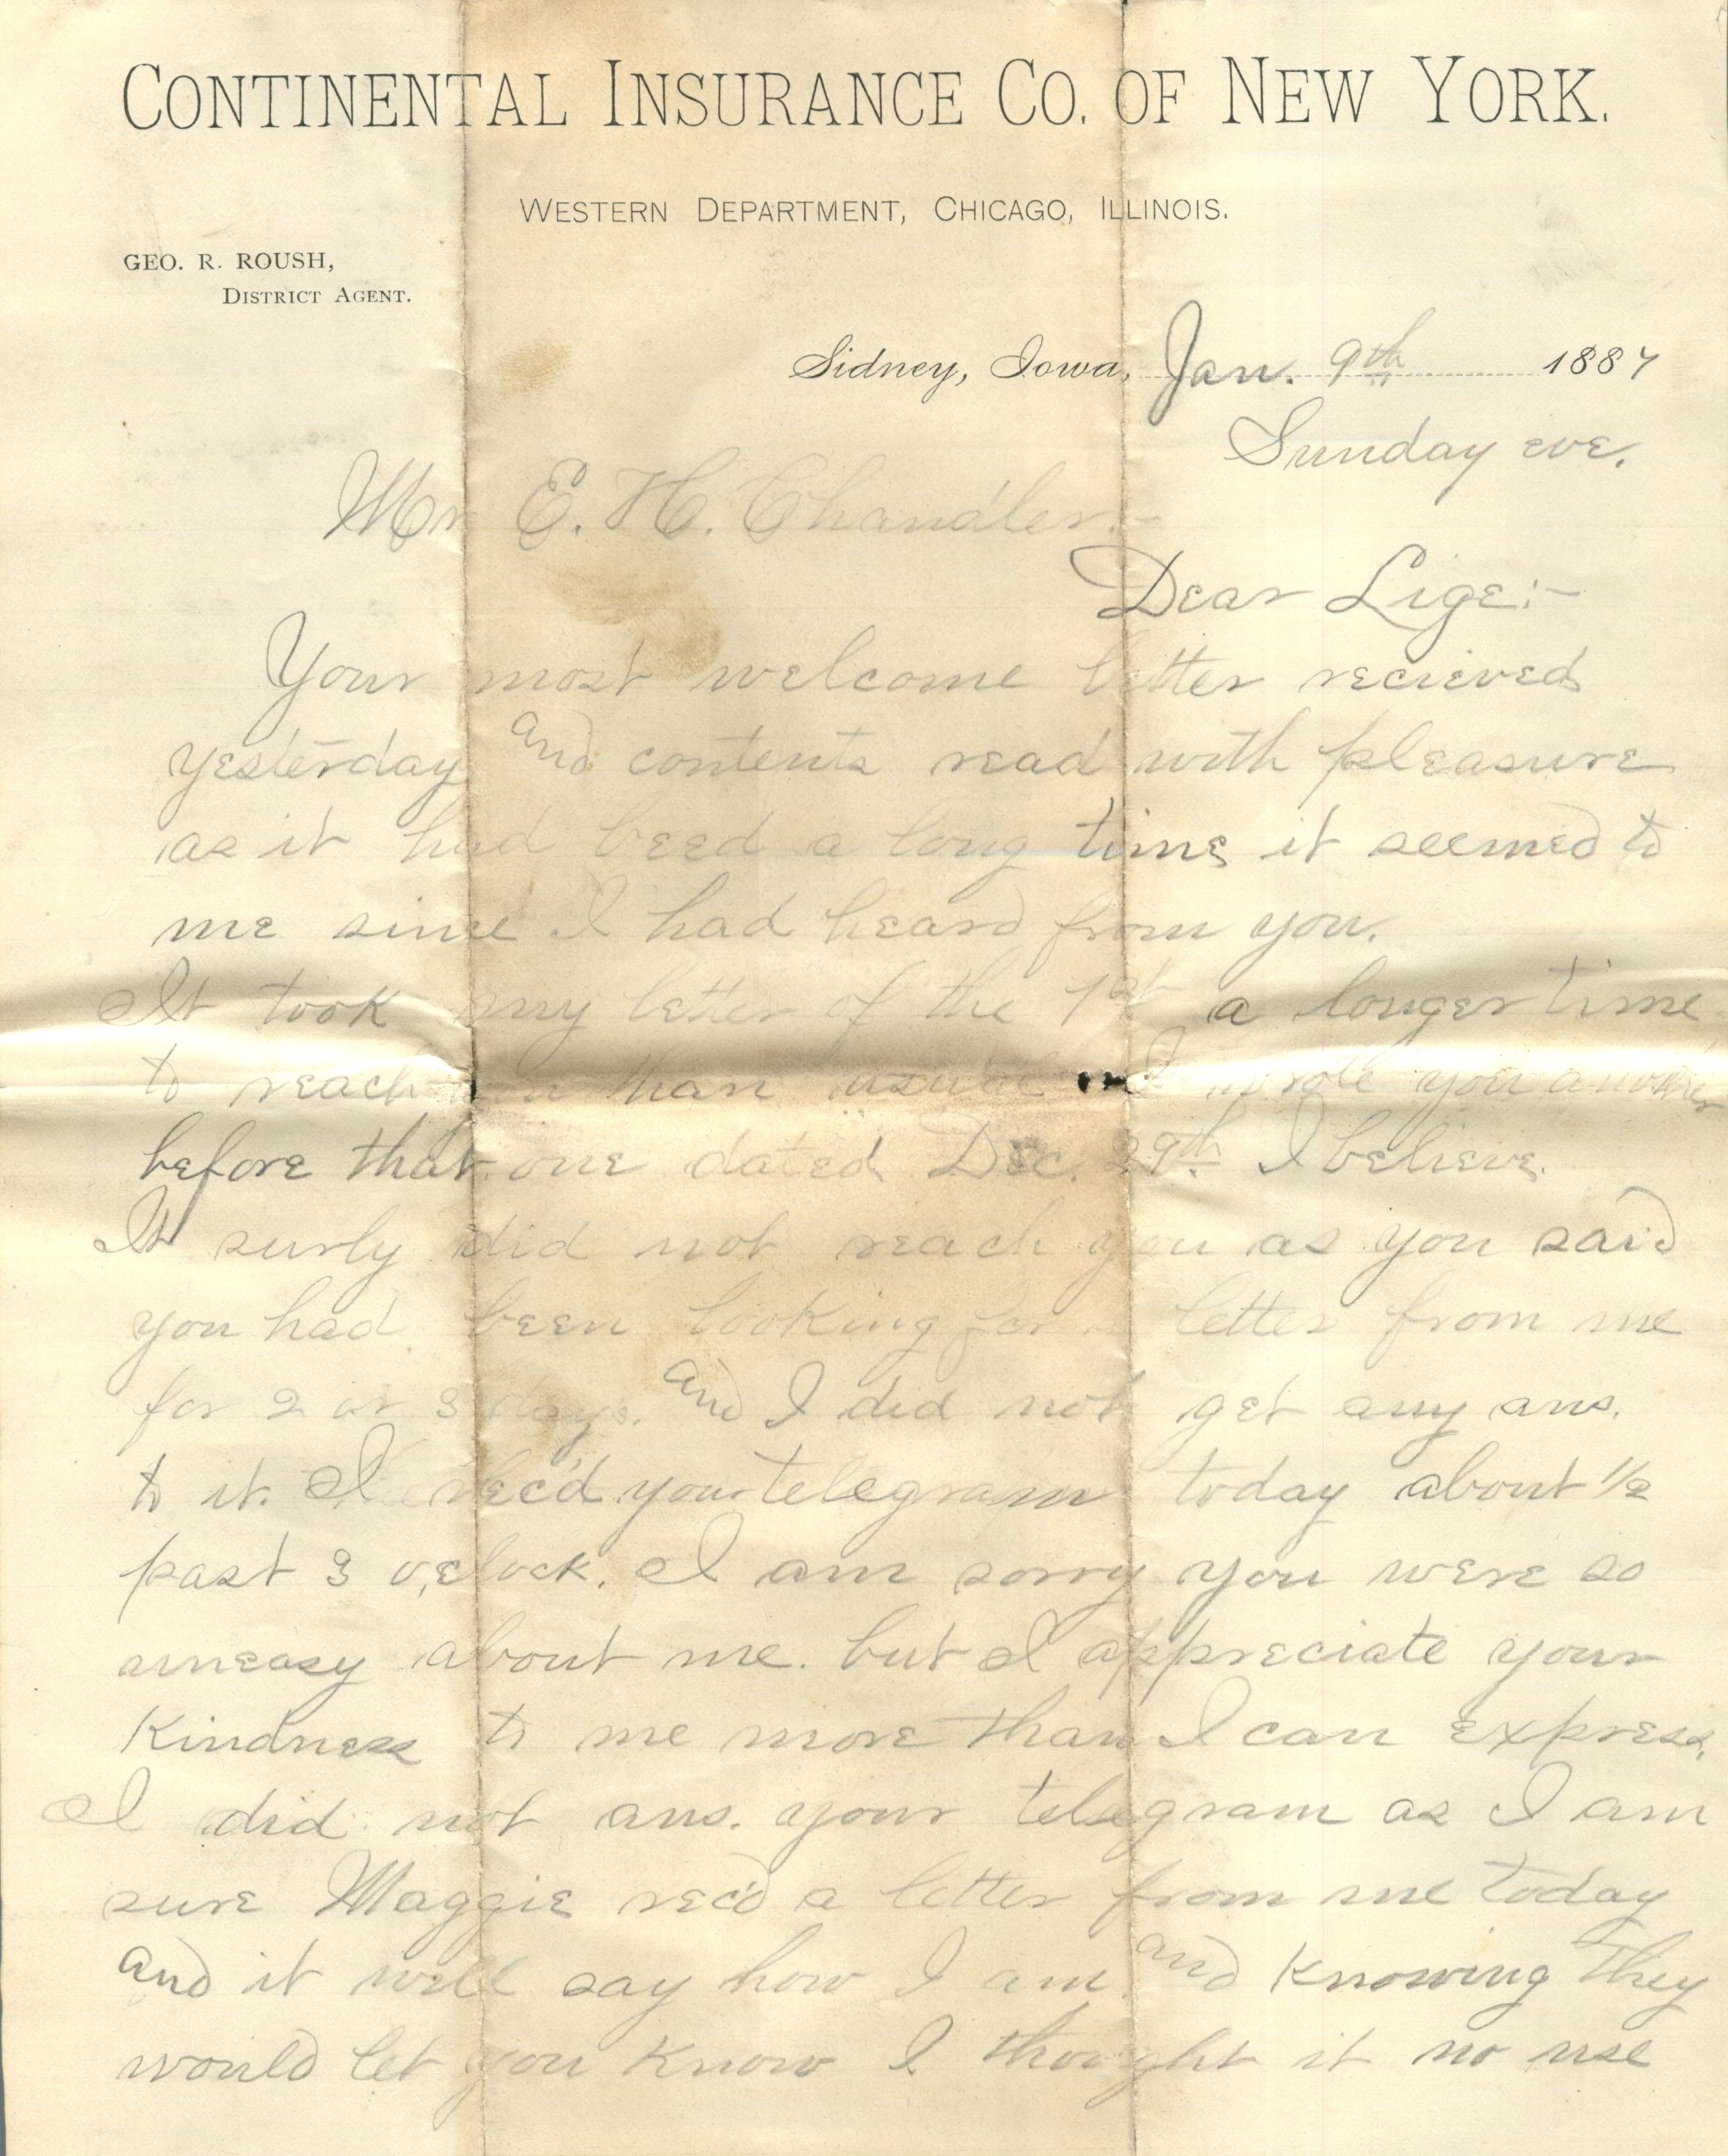 CONTINENTAL INSURANCE CO. OF NEW YORK.
WESTERN DEPARTMENT, CHICAGO, ILLINOIS.
GEO. R. ROUSH,
DISTRICT AGENT.
Sidney, Iowa, Jan. 9th 1887
Sunday eve.
Mr E. H. Chandler:-
Dear Lige:-
Your most welcome letter recieved
yesterday and contents read with pleasure
as it had beed a long time it seemed to
me since I had heard from you.
It took my letter of the 1st a longer time
to reach you than usual I wrote you another
before that one dated Dec. 29th I believe.
It surly did not reach you as you said
you had been looking for a letter from me
for 2 or 3 days. and I did not get any ans.
to it. I rec'd your telegram today about 1/2
past 3 o,clock. I am sorry you were so
uneasy about me. but I appreciate your
Kindness to me more than I can express.
I did not ans. your telegram as I am
sure Maggie rec'd a letter from me today
and it will say how I am. and Knowing they
would let you Know I thought it no use